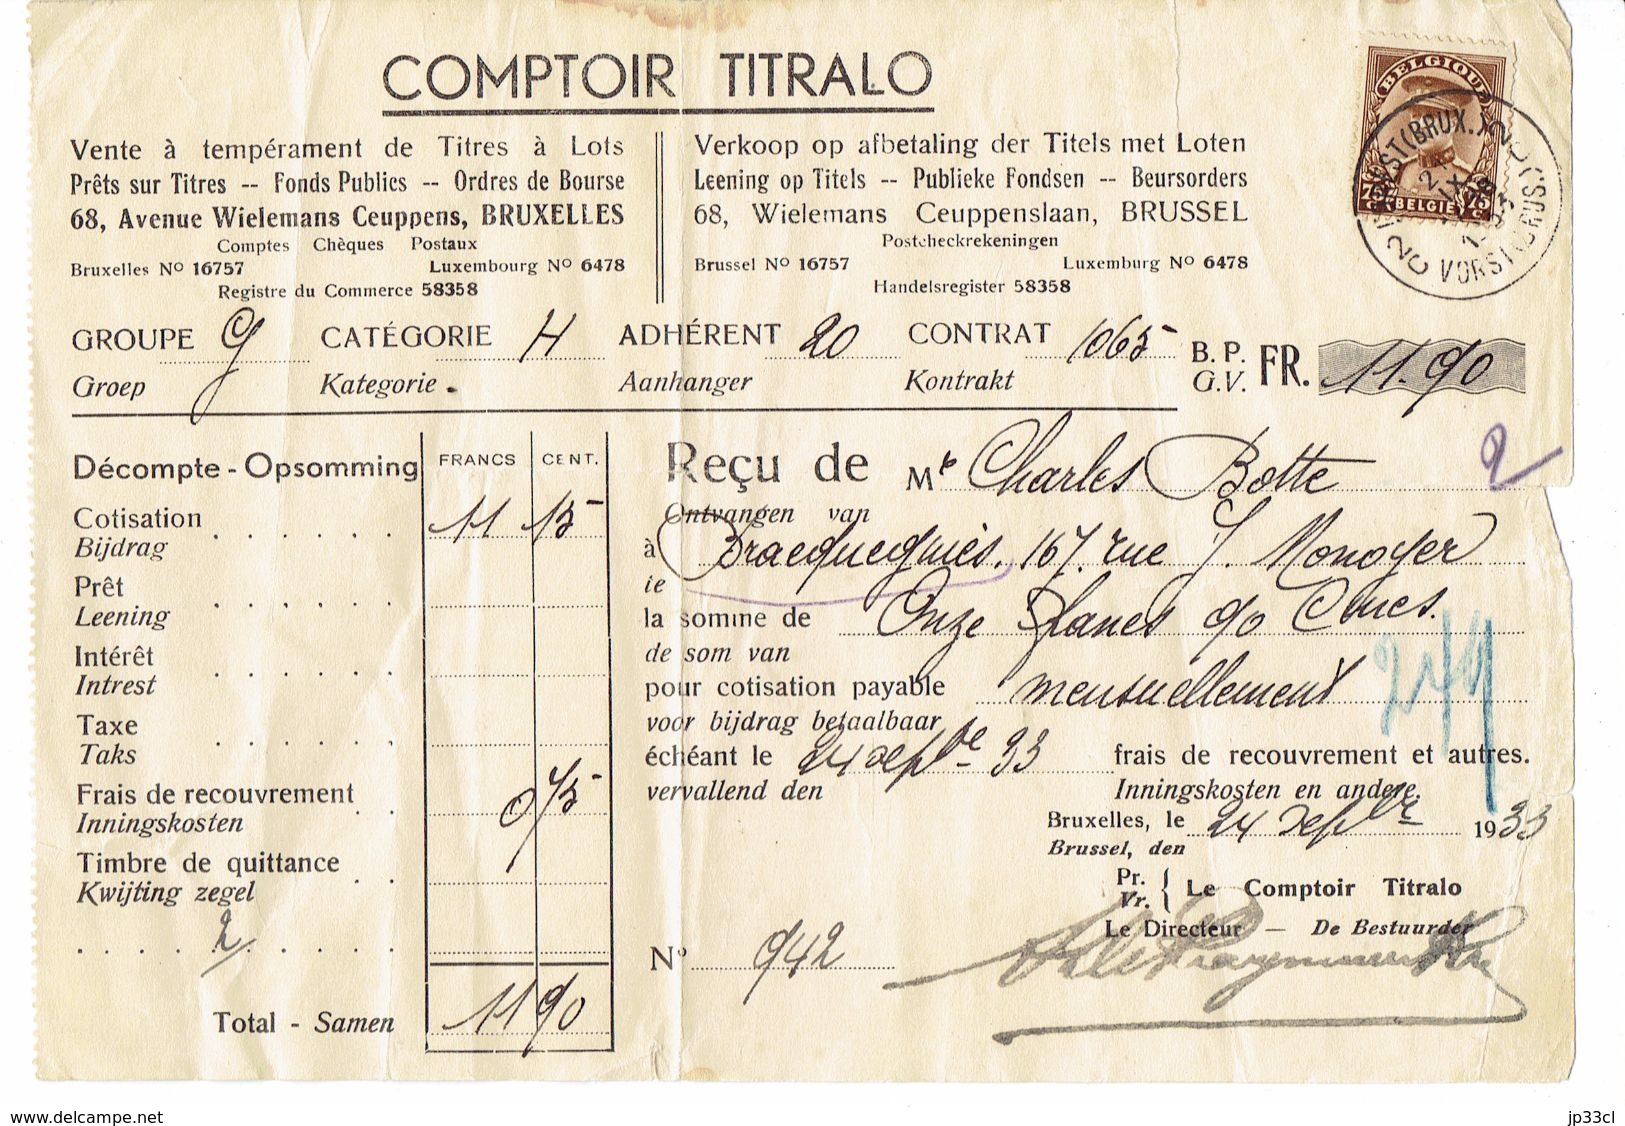 COMPTOIR TITRALO
Vente à tempérament de Titres à Lots
Prêts sur Titres -- Fonds Publics -- Ordres de Bourse
68, Avenue Wielemans Ceuppens, BRUXELLES
Comptes Chèques Postaux
Bruxelles No 16757 Luxembourg No 6478
Registre du Commerce 58358
Verkoop op afbetaling der Titels met Loten
Leening op Titels -- Publieke Fondsen -- Beursorders
68, Wielemans Ceuppenslaan, BRUSSEL
Postcheckrekeningen
Brussel No 16757 Luxemburg No 6478
Handelsregister 58358
BELGIQUE
75 BELGIE 75
VORST (BRUS.)
GROUPE G CATÉGORIE H ADHÉRENT 20 CONTRAT 1065 B. P. FR. 11.90
Groep Kategorie Aanhanger Kontrakt G.V.
Décompte - Opsomming FRANCS CENT.
Cotisation 11 15
Bijdrag
Prêt
Leening
Intérêt
Intrest
Taxe
Taks
Frais de recouvrement 0 75
Inningskosten
Timbre de quittance
Kwijting zegel
2
Total - Samen 11 90
Reçu de Mr Charles Botte 2
Ontvangen van
à Bracquegnies. 167. rue J. Monoyer
te
la somme de Onze francs 90 Cmes.
de som van
pour cotisation payable mensuellement
voor bijdrag betaalbaar
échéant le 24 septbre 33 frais de recouvrement et autres.
vervallend den Inningskosten en andere.
Bruxelles, le 24 septbre 1933
Brussel, den
Pr. Vr. { Le Comptoir Titralo
Le Directeur — De Bestuurder
No 942
www.delcampe.net
jp33cl